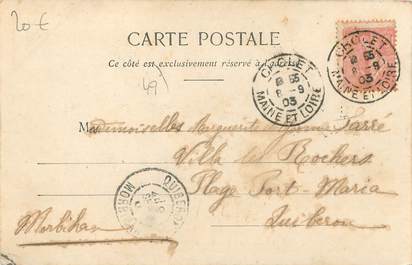 20 €
CARTE POSTALE
Ce côté est exclusivement réservé à l'adresse
49
CHOLET
8 -9
03
MAINE ET LOIRE
CHOLET
8 -9
03
MAINE ET LOIRE
Mademoiselles Marguerite et Yvonne Sarré
Villa les Rochers
Plage Port-Maria
Quiberon
Morbihan
QUIBERON
MORBIHAN